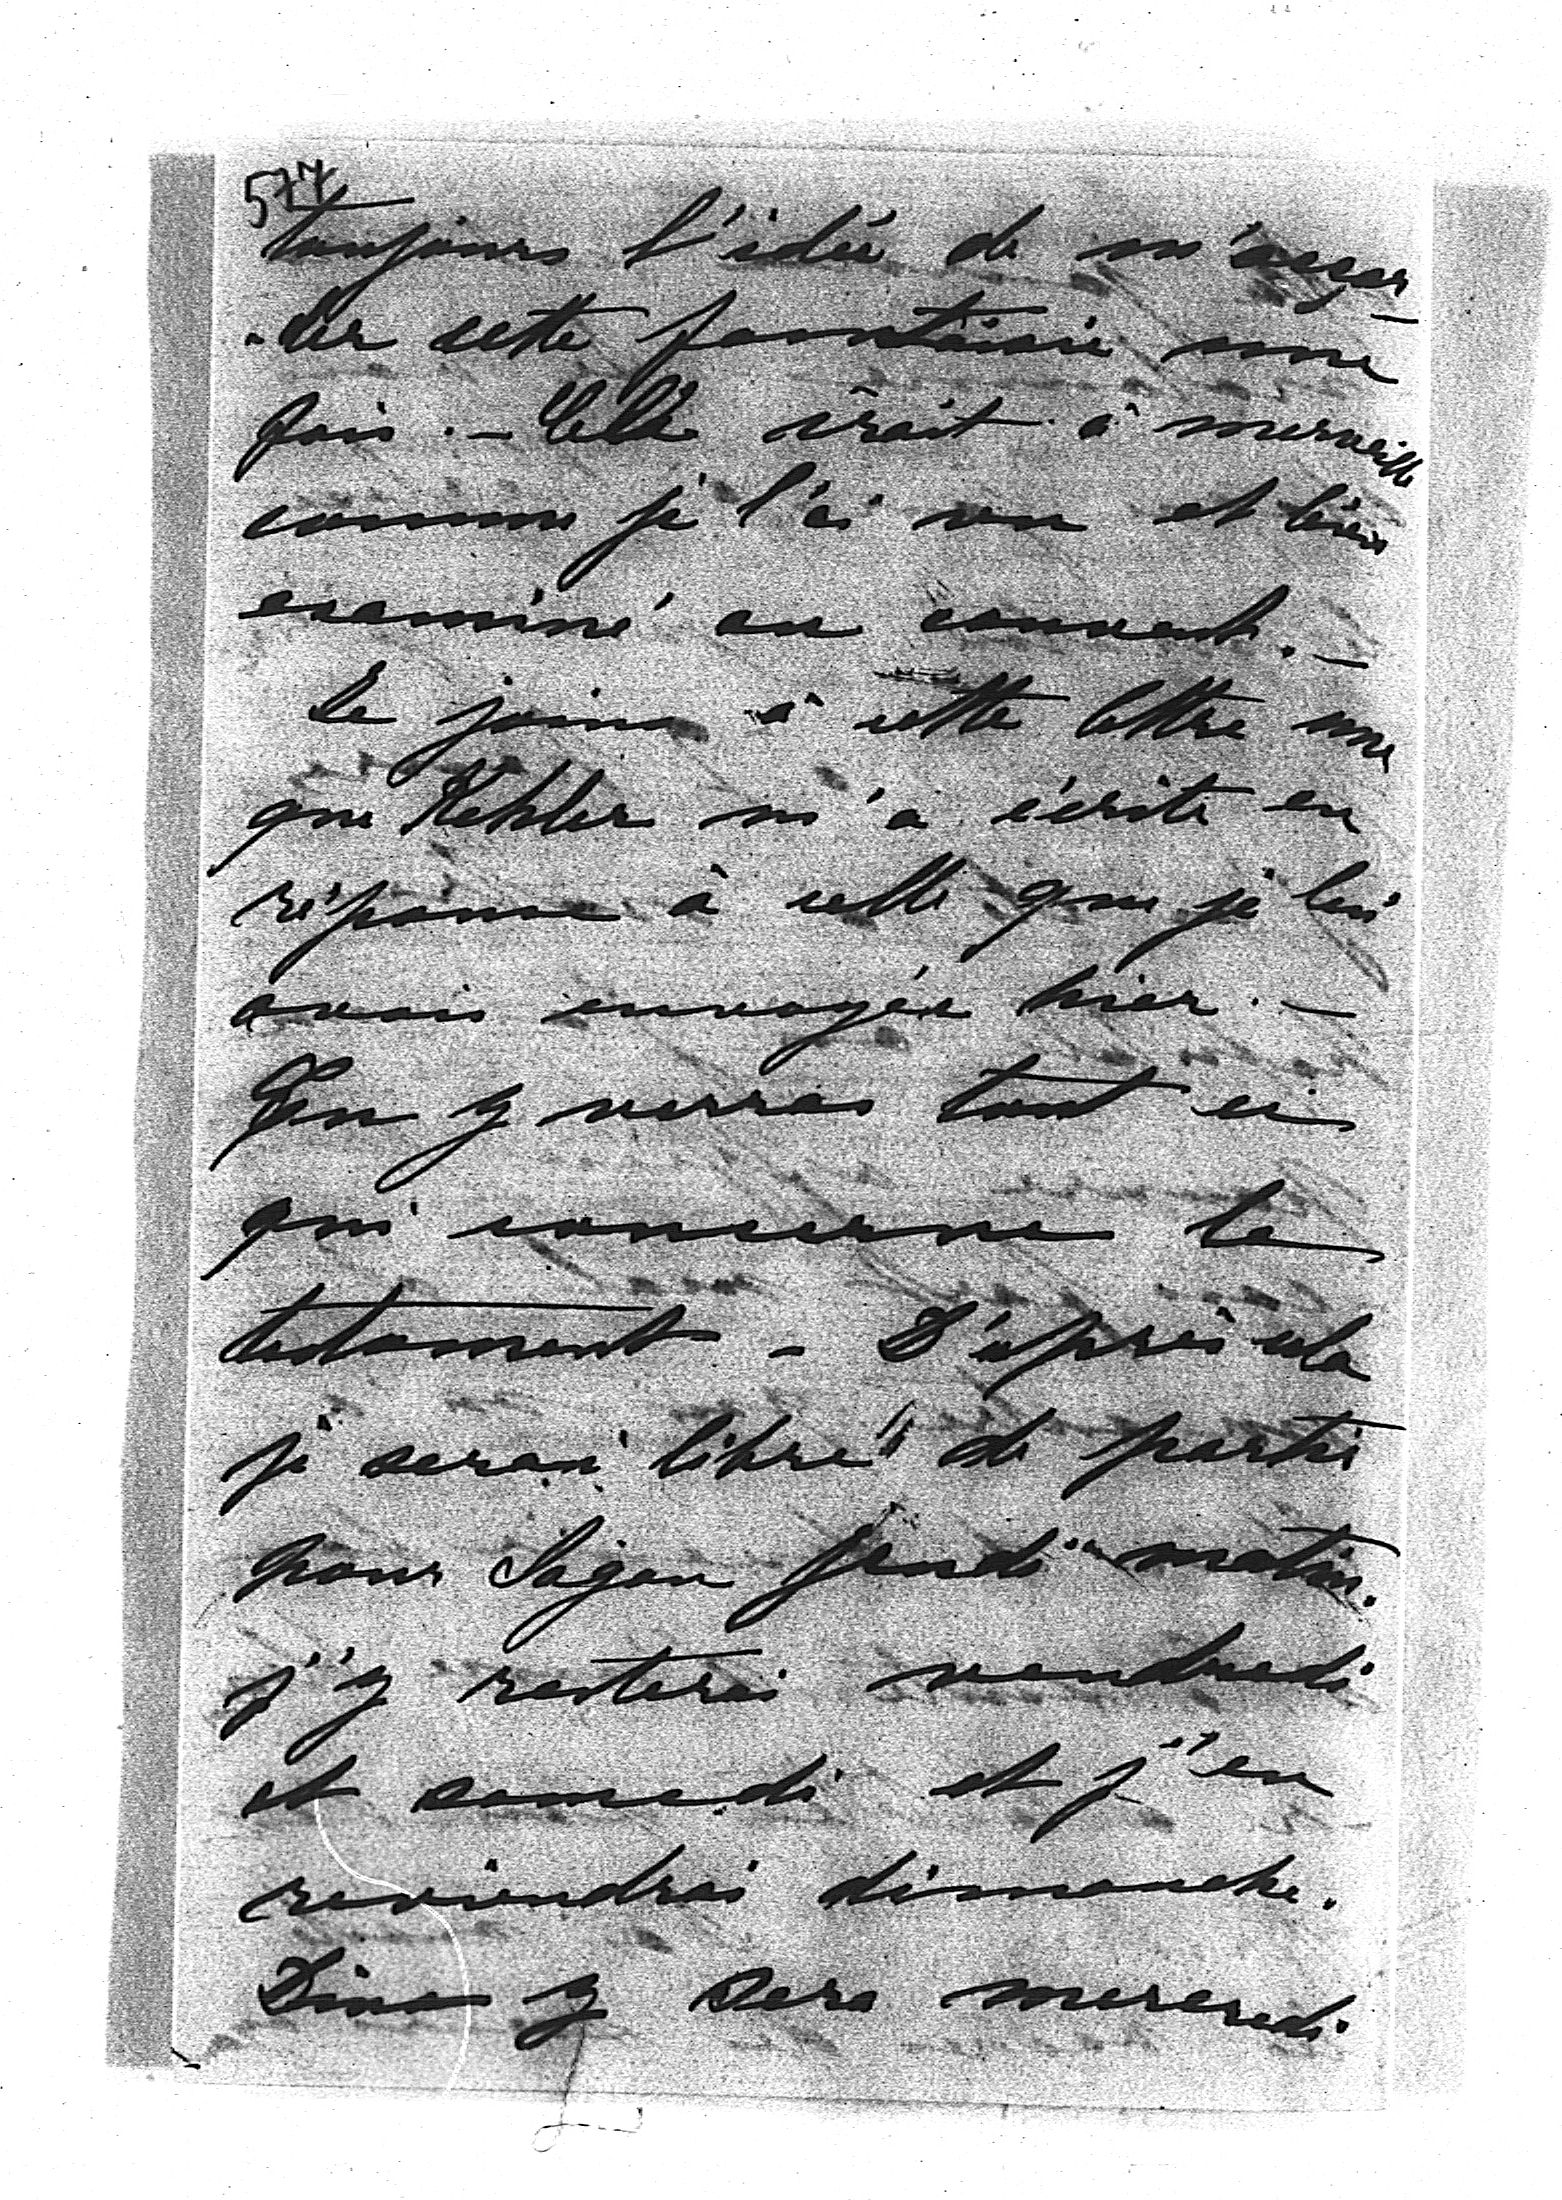 577
toujours l'idée de m'accor-
-der cette fantaisie une
fois. - Cela irait à merveille
comme je l'ai vu et bien
examiné au couvent. -
Je joins à cette lettre une
que Kehler m'a écrite en
réponse à celle que je lui
avais envoyée hier. -
Tu y verras tout ce
qui concerne le
testament - D'après cela
je serai libre de partir
pour Sagan jeudi matin.
j'y resterai vendredi
et samedi et j'en
reviendrai dimanche.
Dino y sera mercredi